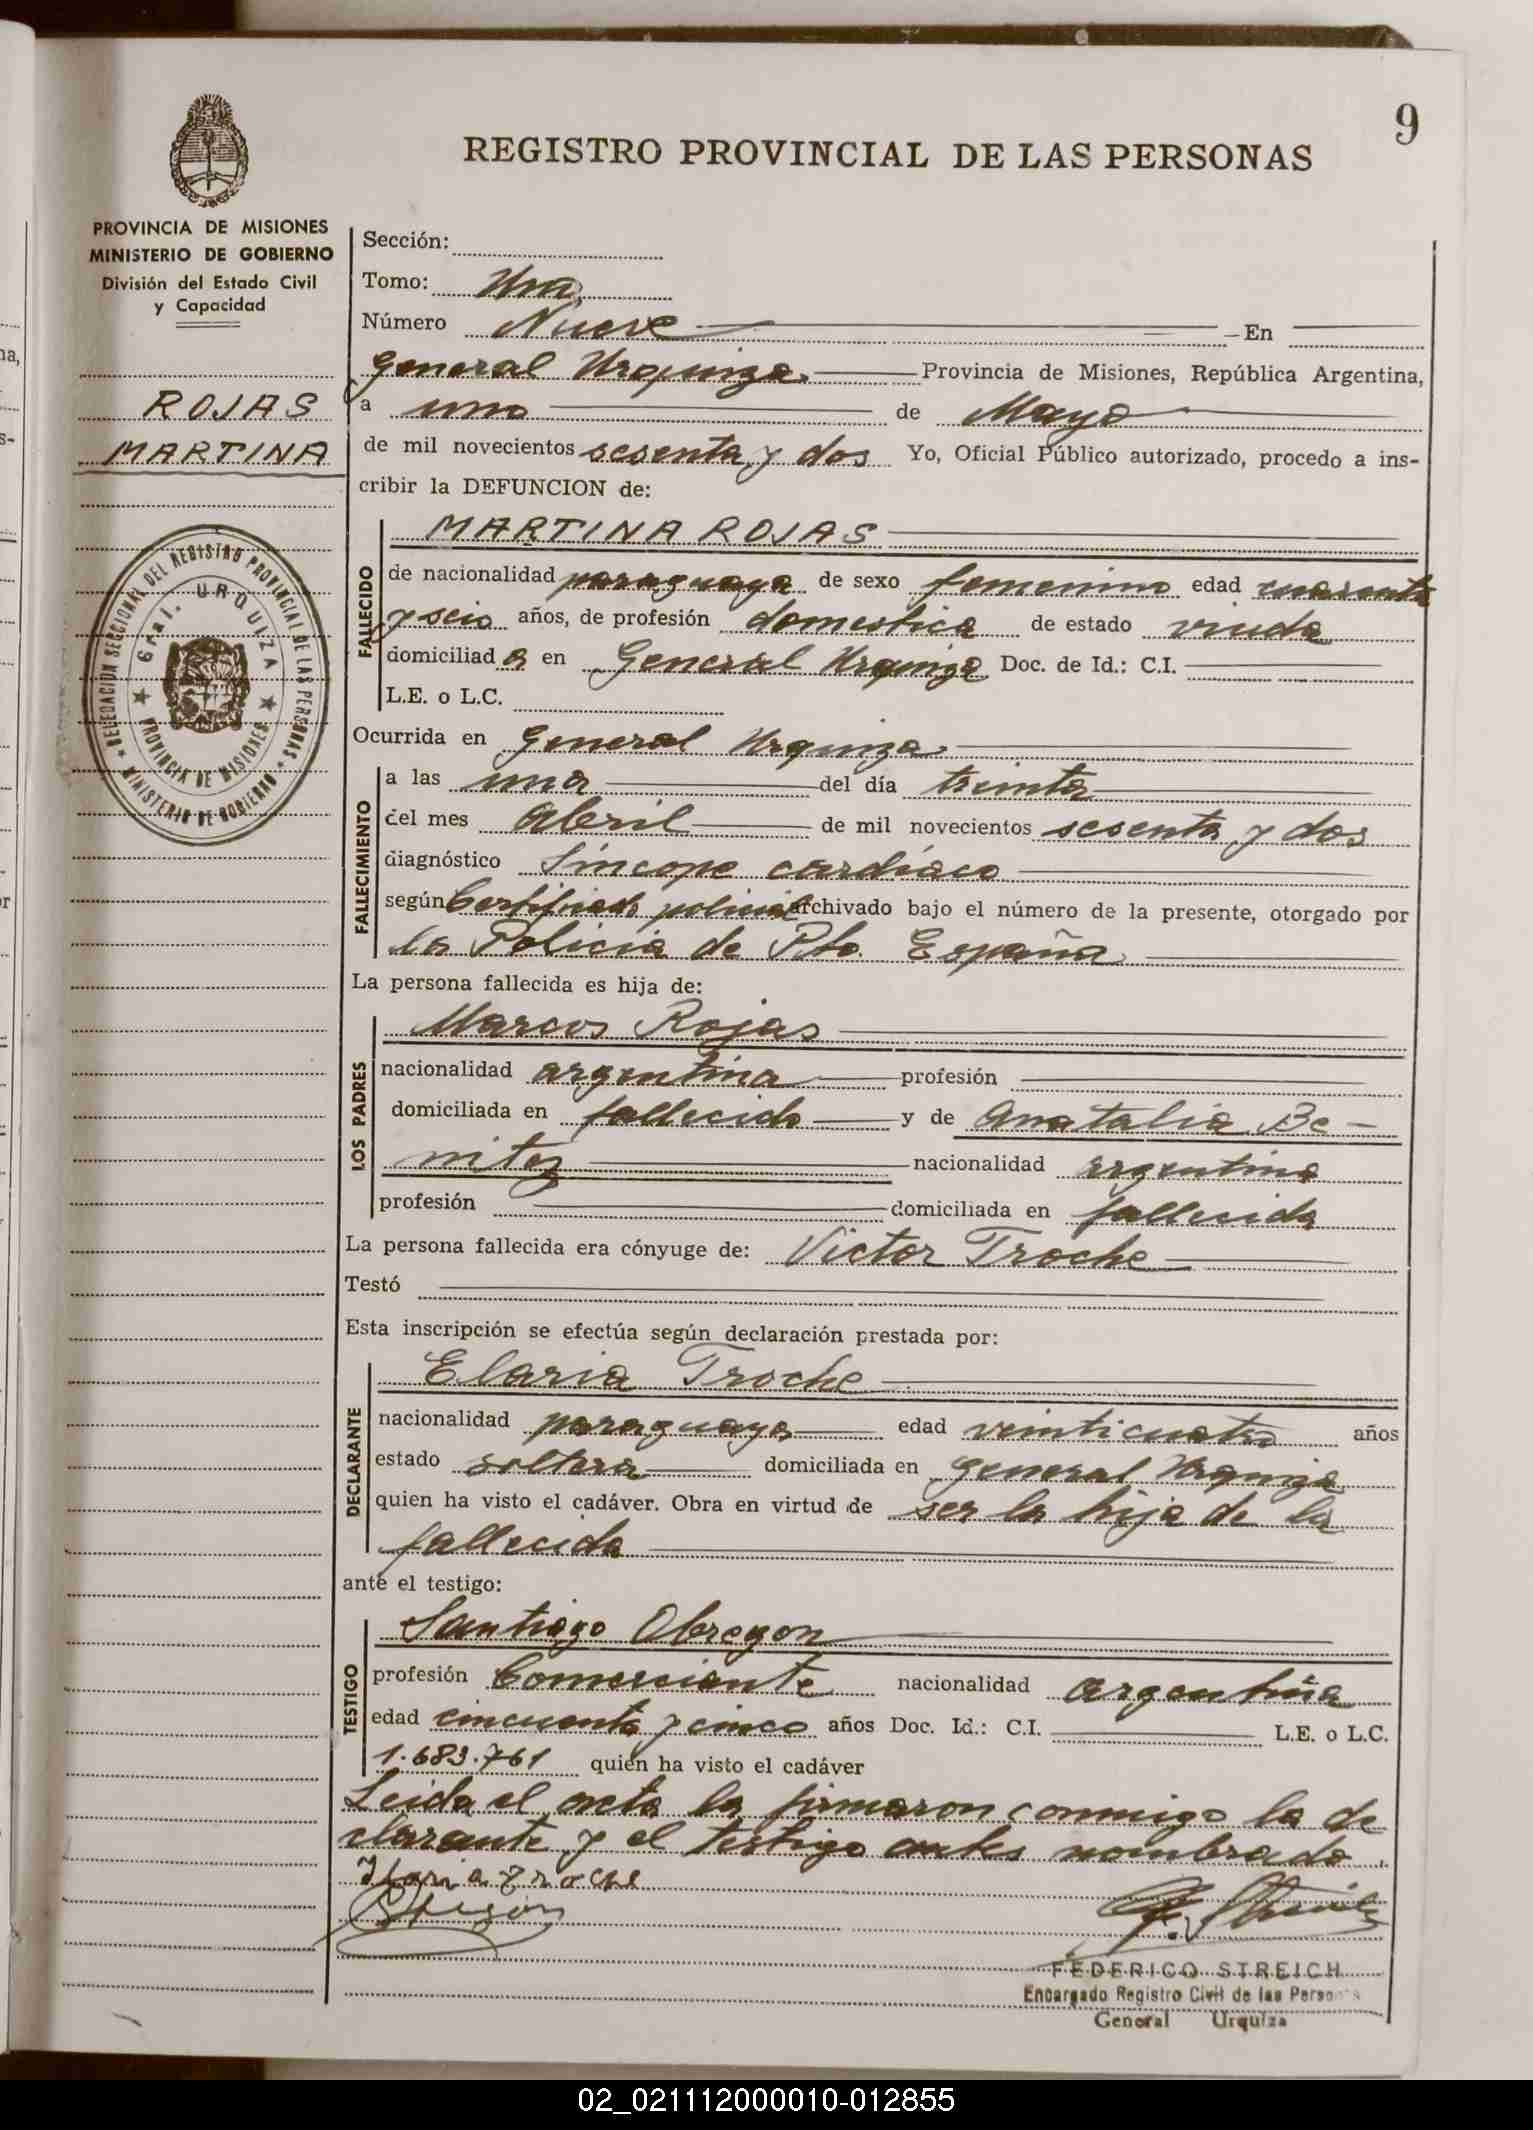 9
REGISTRO PROVINCIAL DE LAS PERSONAS
PROVINCIA DE MISIONES
MINISTERIO DE GOBIERNO
División del Estado Civil
y Capacidad
ROJAS
MARTINA
DELEGACION SECCIONAL DEL REGISTRO PROVINCIAL DE LAS PERSONAS
Gral. URQUIZA
PROVINCIA DE MISIONES
MINISTERIO DE GOBIERNO
Sección:
Tomo: Una
Número Nueve En
General Urquiza Provincia de Misiones, República Argentina,
a uno de Mayo
de mil novecientos sesenta y dos Yo, Oficial Público autorizado, procedo a ins-
cribir la DEFUNCION de:
FALLECIDO
MARTINA ROJAS
de nacionalidad paraguaya de sexo femenino edad cuarenta
y seis años, de profesión domestica de estado viuda
domiciliada en General Urquiza Doc. de Id.: C.I.
L.E. o L.C.
Ocurrida en General Urquiza
FALLECIMIENTO
a las una del día treinta
del mes Abril de mil novecientos sesenta y dos
diagnóstico Síncope cardíaco
según Certificado policial archivado bajo el número de la presente, otorgado por
la Policia de Pto. España
La persona fallecida es hija de:
LOS PADRES
Marcos Rojas
nacionalidad argentina profesión
domiciliada en fallecido y de Anatalia Be-
nitez nacionalidad argentina
profesión domiciliada en fallecida
La persona fallecida era cónyuge de: Victor Troche
Testó
Esta inscripción se efectúa según declaración prestada por:
DECLARANTE
Elaria Troche
nacionalidad paraguaya edad veinticuatro años
estado soltera domiciliada en General Urquiza
quien ha visto el cadáver. Obra en virtud de ser la hija de la
fallecida
ante el testigo:
TESTIGO
Santiago Obregon
profesión Comerciante nacionalidad argentina
edad cincuenta y cinco años Doc. Id.: C.I. L.E. o L.C.
1.683.761 quien ha visto el cadáver
Leida el acta la firmaron conmigo la de
clarante y el testigo antes nombrado.
Ilaria Troche
Obregón
F. Streich
FEDERICO STREICH
Encargado Registro Civil de las Personas
General Urquiza
02_021112000010-012855